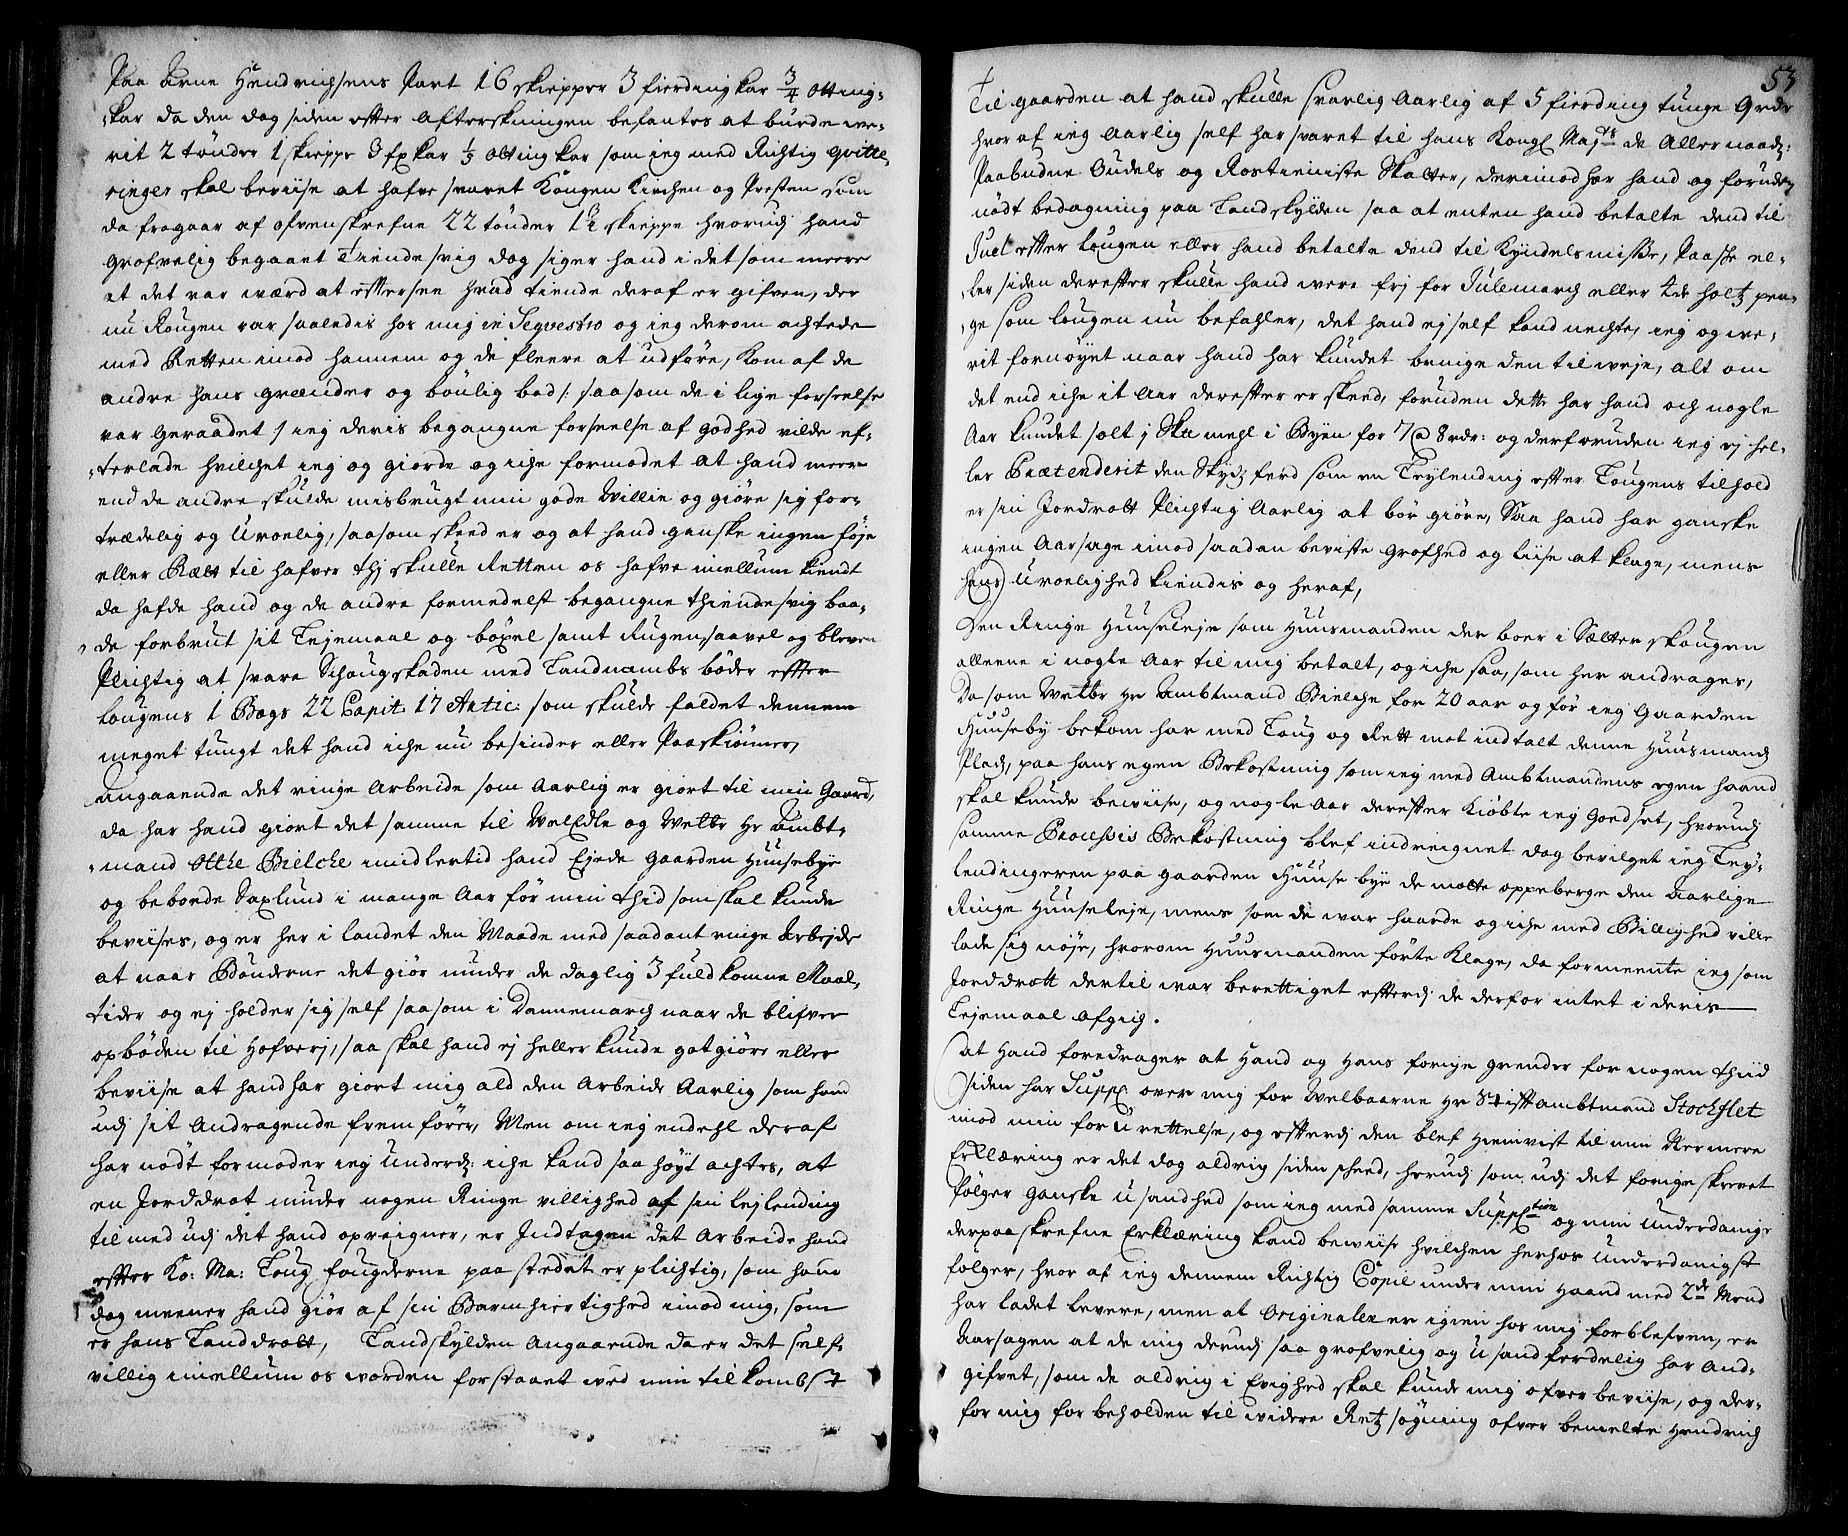 Paa Arne Hendrichsens Part 16 skiepper 3 fierding kar 3/4 otting-
-kar da den dog siden efter afterskningen befantes at burde we-
rit 2 tønder 1 skieppe 3 fr kar 1/3 otting kar som ieg med Rigtig qvitte-
ringer skal beviise at hafve svaret Kongen Kirchen og Presten som
da fragaar af ofvenskrefne 22 tønder 1 1/4 skieppe hvorudj hand
grofvelig begaaet Tiende svig dog siger hand i det som meere
at det var wærd at effter see hvad tiende deraf er gifven, der
nu Rougen var saaledis hos mig in Seqvestro og ieg derom achtede
med Retten imod hannem og de fleere at udføre, Kom af de
andre hans grænder og bønlig bad /: saasom de i lige forseelse
var Geraadet / ieg deris begangne forseelse af godhed vilde ef-
-terlade hvilchet ieg og giorde og iche formodet at hand meere
end de andre skulde misbrugt min gode Willie og giøre sig for-
trædelig og Uroelig, saasom skeed er og at hand ganske ingen føje
eller Rætt til hafver thj skulle Retten os hafve imellum kiendt
da hafde hand og de andre formedelst begangne thiende svig baa-
de forbrut sit Lejemaal og bøxel samt Rugen saavel og bleven
Plichtig at svare Schougskaden med Landnambs bøder effter
Lougens 1 Bogs 22 Capit: 17 Artic: som skulde faldet dennem
meget tungt det hand iche nu besinder eller Paaskiønner,
Angaaende det ringe arbeide som Aarlig er giort til min Gaard,
da har hand giort det samme til WelEdle og Welbr Hr Ambt-
-mand Otthe Bielche imidlertid hand Ejede gaarden Huusebye
og beboede Saxlund i mange Aar før min thid som skal kunde
beviises, og er her i landet den Maade med saadant ringe Arbejde
at naar Bønderne det giør nyder de daglig 3 fuldkomne Maal-
tider og ej holder sig self saasom i Dannemarch naar de blifver
opbøden til Hofverj, saa skal hand ej heller kunde gotgiøre eller
beviise at hand har giort mig ald den Arbeide Aarlig som hand
udj sit Andragende fremfører, Men om ieg endehl deraf
har nødt formoder ieg Underd: iche kand saa høyt achtes, at
en Jorddrot nyder nogen Ringe villighed af sin lejlending
til med udj det hand opreigner, er Indtagen det Arbeide hand
effter Ko: Ma: Loug fougderne paa stedet er plichtig, som hand
dog meener hand giør af sin Barmhiertighed imod mig, som
er hans Landdrott, Landskylden Angaaende da er det self-
villig imellum os worden forstaaet wed min tilkombst

53
Til gaarden at hand skulle svarlig Aarlig af 5 fierding tunge Gods
hvoraf ieg Aarlig self har svaret til hans Kongl Mayts de Allernaadg:
Paabudne Oudels og Rostienniste Skatter, derimod har hand og foruden
nødt bedagning paa Landskylden saa at enten hand betalte dend til
Juel effter Lougen eller hand betalte dend til Kyndelsmisse, Paaske el-
-ler siden dereffter skulle hand were frj for Julemarch eller 4de holtz pen-
-ge som Lougen nu befahler, det hand ej self kand nechte, ieg og we-
rit fornøyet naar hand har kundet bringe den til weje, alt om
det end iche it Aar dereffter er skeed, foruden dette har hand och nogle
Aar kundet solt j Sku mehl i Byen for 7 a 8 rdr: og derforuden ieg ej hel-
ler Prætenderit den Skydtz ferd som en Leylending effter Lougens tilhold
er sin Jordrott Plichtig Aarlig at bør giøre, Saa hand har ganske
ingen Aarsage imod saadan beviste grofhed og liise at klage, mens
hans Uroelighed kiendis og heraf,
Den Ringe Huuseleje som Huusmanden der boer i Sætter skougen
alleene i nogle Aar til mig betalt, og iche saa, som her andrages,
Da som Welbr Hr Ambtmand Bielche for 20 aar og før ieg Gaarden
Huuseby bekom har med Loug og Rett mot indtalt denne Huusmands
Plads, paa hans egen Bekostning som ieg med Ambtmandens egen haand
skal kunde beviise, og nogle Aar dereffter Kiøbte ieg Goedset, hvorudj
samme Processis Bekostning blef indreignet dog bevilget ieg Ley-
lendingeren paa gaarden Huuse bye de motte oppeberge den Aarlige
Ringe Huuseleje, mens som de war haarde og iche med Billighed ville
lade sig nøje, hvorom Huusmanden førte Klage, da formeente ieg som
Jorddrott dertil war berettiget effterdj de derfor intet i deris
Lejemaal afgich.
At Hand foredrager at Hand og Hans forige grender for nogen thiid
siden har Suppl over mig for Welbaarne Hr Stifftambtmand Stochflet
mod min for U rettelse, og effterdj den blef hiemvist til min Nermere
Erklæring er det dog aldrig siden scheed, herudj som udj det forige skrevet
følger ganske Usandhed som ieg med samme Supplication og min Underdanige
derpaa skrefne Erklæring kand bewiise hvilchen herhos Underdanigst
følger, hvor af ieg dennem Rigtig Copie under min Haand med 2de Mend
har ladet levere, men at Originalen er igien hos mig forblefven, er
Aarsagen at de mig derudj saa grofvelig og Usandferdelig har And-
gifvet, som de aldrig i Evighed skal kunde mig ofver beviise, og der-
for mig for beholden til widere Retz søgning ofver bemelte Hendrich